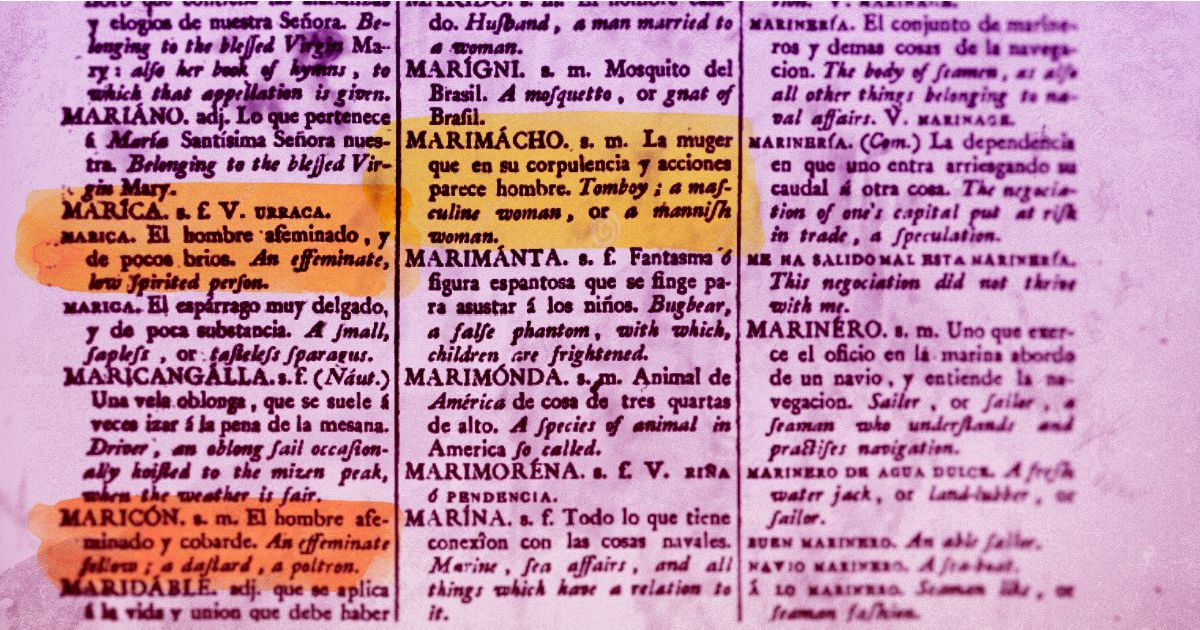 y elogios de nuestra Señora. Be-
longing to the bleſſed Virgin Ma-
ry: alſo her book of hymns, to
which that appellation is given.
MARIÁNO. adj. Lo que pertenece
á María Santísima Señora nues-
tra. Belonging to the bleſſed Vir-
gin Mary.
MARÍCA. s. f. V. URRACA.
MARICA. El hombre afeminado, y
de pocos brios. An effeminate,
low ſpirited perſon.
MARICA. El espárrago muy delgado,
y de poca substancia. A ſmall,
ſapleſs, or taſteleſs ſparagus.
MARICANGÁLLA. s. f. (Náut.)
Una vela oblonga, que se suele á
veces izar á la pena de la mesana.
Driver, an oblong ſail occaſion-
ally hoiſted to the mizen peak,
when the weather is fair.
MARICÓN. s. m. El hombre afe-
minado y cobarde. An effeminate
fellow; a daſtard, a poltron.
MARIDÁBLE. adj. que se aplica
á la vida y union que debe haber
do. Huſband, a man married to
a woman.
MARÍGNI. s. m. Mosquito del
Brasil. A moſquetto, or gnat of
Braſil.
MARIMÁCHO. s. m. La muger
que en su corpulencia y acciones
parece hombre. Tomboy; a maſ-
culine woman, or a manniſh
woman.
MARIMÁNTA. s. f. Fantasma ó
figura espantosa que se finge pa-
ra asustar á los niños. Bugbear,
a falſe phantom, with which,
children are frightened.
MARIMÓNDA. s. m. Animal de
América de cosa de tres quartas
de alto. A ſpecies of animal in
America ſo called.
MARIMORÉNA. s. f. V. RIÑA
ó PENDENCIA.
MARÍNA. s. f. Todo lo que tiene
conexîon con las cosas navales.
Marine, ſea affairs, and all
things which have a relation to
it.
MARINERÍA. El conjunto de marine-
ros y demas cosas de la navega-
cion. The body of ſeamen, as alſo
all other things belonging to na-
val affairs. V. MARINAGE.
MARINERÍA. (Com.) La dependéncia
en que uno entra arriesgando su
caudal á otra cosa. The negocia-
tion of one's capital put at riſk
in trade, a ſpeculation.
ME HA SALIDO MAL ESTA MARINERÍA.
This negociation did not thrive
with me.
MARINÉRO. s. m. Uno que exer-
ce el oficio en la marina abordo
de un navio, y entiende la na-
vegacion. Sailer, or ſailor, a
ſeaman who underſtands and
practiſes navigation.
MARINERO DE AGUA DULCE. A freſh
water jack, or land-lubber, or
ſailor.
BUEN MARINERO. An able ſailor.
NAVIO MARINERO. A ſea-boat.
Á LO MARINERO. Seaman like, or
ſeaman faſhion.